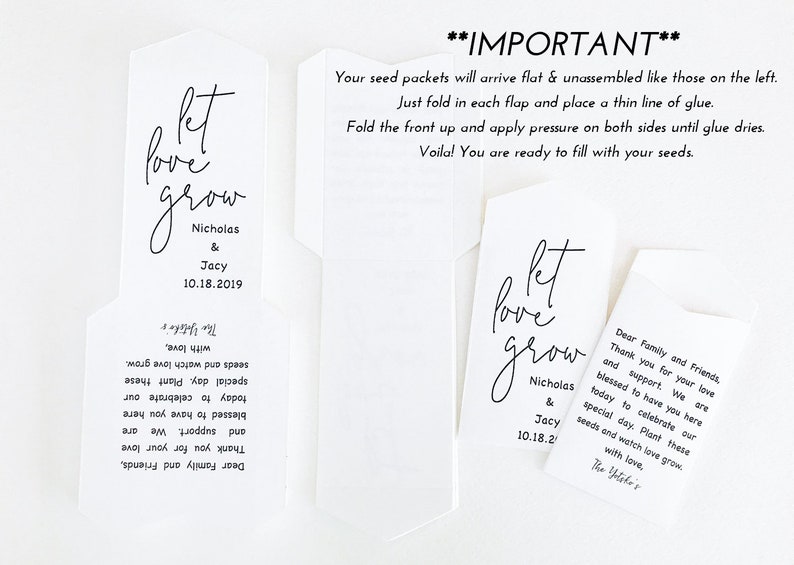 **IMPORTANT**
Your seed packets will arrive flat & unassembled like those on the left.
Just fold in each flap and place a thin line of glue.
Fold the front up and apply pressure on both sides until glue dries.
Voila! You are ready to fill with your seeds.
let
love
grow
Nicholas
&
Jacy
10.18.2019
Dear Family and Friends,
Thank you for your love
and support. We are
blessed to have you here
today to celebrate our
special day. Plant these
seeds and watch love grow.
with love,
The Yotsko's
let
love
grow
Nicholas
&
Jacy
10.18.2019
Dear Family and Friends,
Thank you for your love
and support. We are
blessed to have you here
today to celebrate our
special day. Plant these
seeds and watch love grow.
with love,
The Yotsko's